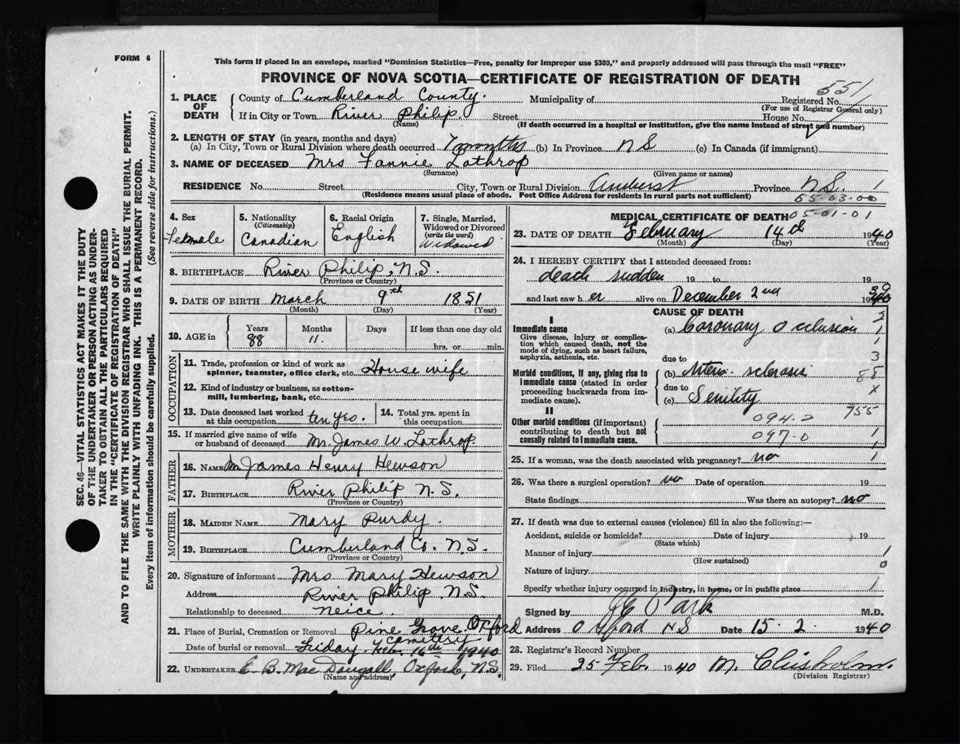 FORM 6
This form if placed in an envelope, marked "Dominion Statistics—Free, penalty for improper use $300," and properly addressed will pass through the mail "FREE"
PROVINCE OF NOVA SCOTIA—CERTIFICATE OF REGISTRATION OF DEATH
551
1. PLACE OF DEATH
County of Cumberland County. Municipality of Registered No.
(For use of Registrar General only)
If in City or Town River Philip. Street House No.
(Name) (If death occurred in a hospital or institution, give the name instead of street and number)
2. LENGTH OF STAY (in years, months and days)
(a) In City, Town or Rural Division where death occurred 7 months (b) In Province N S (c) In Canada (if immigrant)
3. NAME OF DECEASED Mrs Fannie Lothrop
(Surname) (Given name or names)
RESIDENCE No. Street City, Town or Rural Division Amherst Province N.S. 1
(Residence means usual place of abode. Post Office Address for residents in rural parts not sufficient)
05-03-00
4. Sex Female
5. Nationality (Citizenship) Canadian
6. Racial Origin English
7. Single, Married, Widowed or Divorced (write the word) Widowed
8. BIRTHPLACE River Philip, N.S.
(Province or Country)
9. DATE OF BIRTH March 9th 1851
(Month) (Day) (Year)
10. AGE in Years Months Days If less than one day old
88 11. hrs. or min.
OCCUPATION
11. Trade, profession or kind of work as spinner, teamster, office clerk, etc. House wife
12. Kind of industry or business, as cotton-mill, lumbering, bank, etc.
13. Date deceased last worked at this occupation ten yrs.
14. Total yrs. spent in this occupation
15. If married give name of wife or husband of deceased Mr. James W. Lothrop
FATHER
16. NAME Mr James Henry Hewson
17. BIRTHPLACE River Philip N.S.
(Province or Country)
MOTHER
18. MAIDEN NAME Mary Purdy.
19. BIRTHPLACE Cumberland Co. N.S.
(Province or Country)
20. Signature of informant Mrs Mary Hewson
Address River Philip N.S.
Relationship to deceased neice.
21. Place of Burial, Cremation or Removal Pine Grove Oxford
Cemetery
Date of burial or removal Friday Feb. 16th 1940
22. UNDERTAKER E. B. MacDougall, Oxford, N.S.
(Name and address)
MEDICAL CERTIFICATE OF DEATH 05-01-01
23. DATE OF DEATH February 14th 1940
(Month) (Day) (Year)
24. I HEREBY CERTIFY that I attended deceased from:
death sudden 19 19
and last saw her alive on December 2nd 1939
CAUSE OF DEATH
I
Immediate cause (a) Coronary Occlusion
Give disease, injury or complication which caused death, not the mode of dying, such as heart failure, asphyxia, asthenia, etc.
due to
Morbid conditions, if any, giving rise to immediate cause (stated in order proceeding backwards from immediate cause).
(b) Arterio sclerosis
due to
(c) Senility
II
Other morbid conditions (if important) contributing to death but not causally related to immediate cause.
094.2
097-0
25. If a woman, was the death associated with pregnancy? no
26. Was there a surgical operation? no Date of operation 19
State findings Was there an autopsy? no
27. If death was due to external causes (violence) fill in also the following:—
Accident, suicide or homicide? Date of injury 19
(State which)
Manner of injury
(How sustained)
Nature of injury
Specify whether injury occurred in industry, in home, or in public place
Signed by J E Park M.D.
Address Oxford N S Date 15. 2. 1940
28. Registrar's Record Number
29. Filed 25 Feb. 1940 M. Chisholm.
(Division Registrar)
SEC. 46—VITAL STATISTICS ACT MAKES IT THE DUTY
OF THE UNDERTAKER OR PERSON ACTING AS UNDER-
TAKER TO OBTAIN ALL THE PARTICULARS REQUIRED
IN THE "CERTIFICATE OF REGISTRATION OF DEATH"
AND TO FILE THE SAME WITH THE DIVISION REGISTRAR WHO SHALL ISSUE THE BURIAL PERMIT.
WRITE PLAINLY WITH UNFADING INK. THIS IS A PERMANENT RECORD.
Every item of information should be carefully supplied. (See reverse side for instructions.)